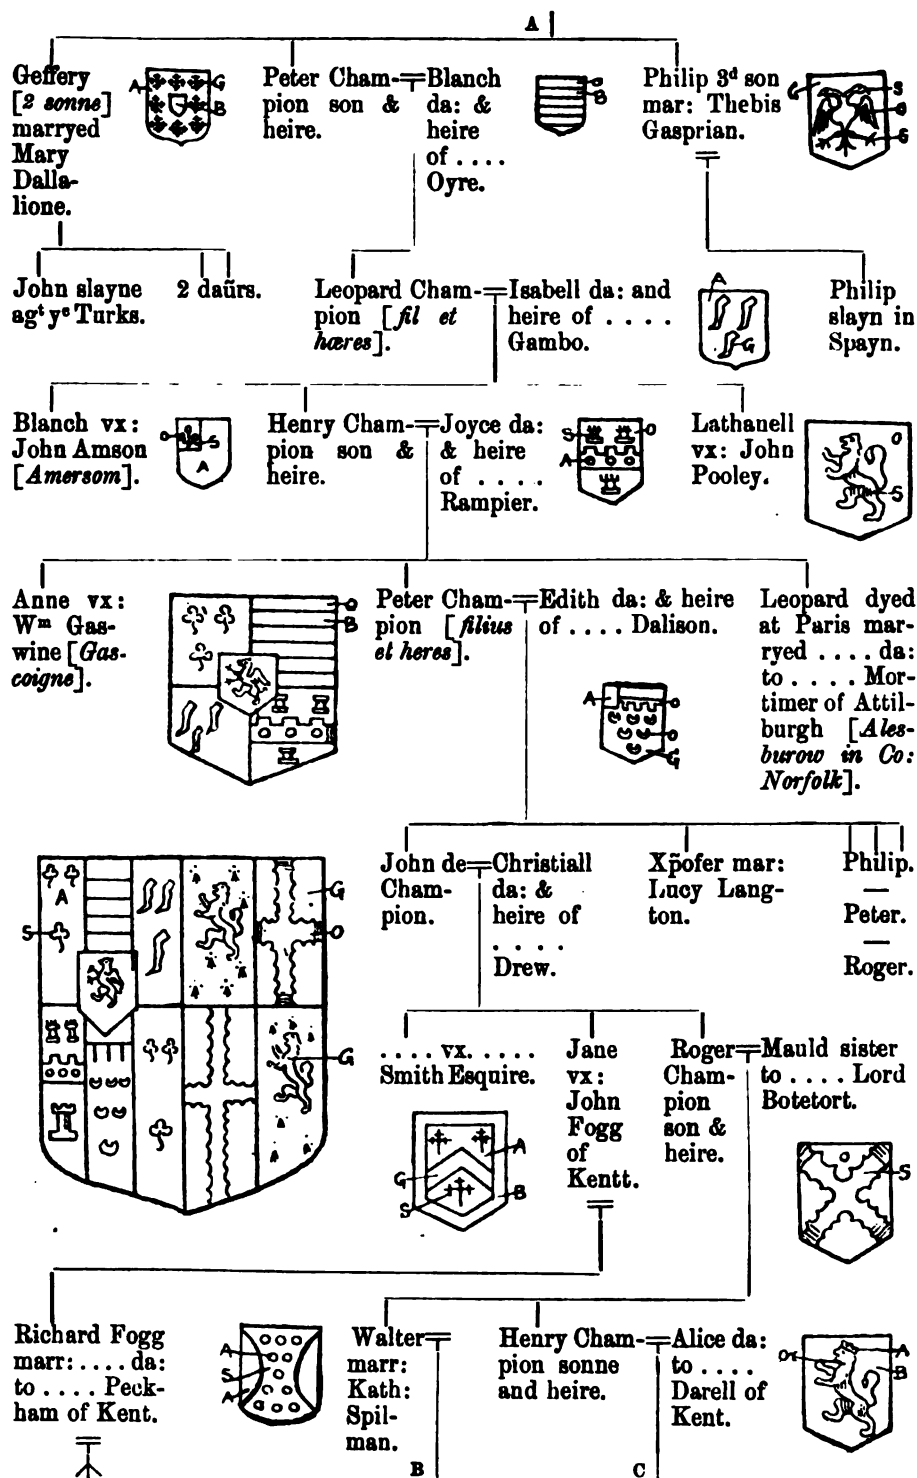 A
Geffery
[2 sonne]
marryed
Mary
Dalla-
lione.
A
G
B
Peter Cham-
pion son &
heire.
Blanch
da: &
heire
of . . . .
Oyre.
O
B
Philip 3d son
mar: Thebis
Gasprian.
G
S
O
G
John slayne
agt ye Turks.
2 daũrs.
Leopard Cham-
pion [fil et
hæres].
Isabell da: and
heire of . . . .
Gambo.
A
G
Philip
slayn in
Spayn.
Blanch vx:
John Amson
[Amersom].
O
S
A
Henry Cham-
pion son &
heire.
Joyce da:
& heire
of . . . .
Rampier.
S
O
A
Lathanell
vx: John
Pooley.
O
S
Anne vx:
Wm Gas-
wine [Gas-
coigne].
O
B
Peter Cham-
pion [filius
et heres].
Edith da: & heire
of . . . . Dalison.
A
O
O
G
Leopard dyed
at Paris mar-
ryed . . . . da:
to . . . . Mor-
timer of Attil-
burgh [Ales-
burow in Co:
Norfolk].
A
S
G
O
G
John de
Cham-
pion.
Christiall
da: &
heire of
. . . .
Drew.
Xp̃ofer mar:
Lucy Lang-
ton.
Philip.
—
Peter.
—
Roger.
. . . . vx. . . . .
Smith Esquire.
A
G
S
B
Jane
vx:
John
Fogg
of
Kentt.
Roger
Cham-
pion
son &
heire.
Mauld sister
to . . . . Lord
Botetort.
S
Richard Fogg
marr: . . . . da:
to . . . . Peck-
ham of Kent.
A
S
A
Walter
marr:
Kath:
Spil-
man.
B
Henry Cham-
pion sonne
and heire.
Alice da:
to . . . .
Darell of
Kent.
C
A
B